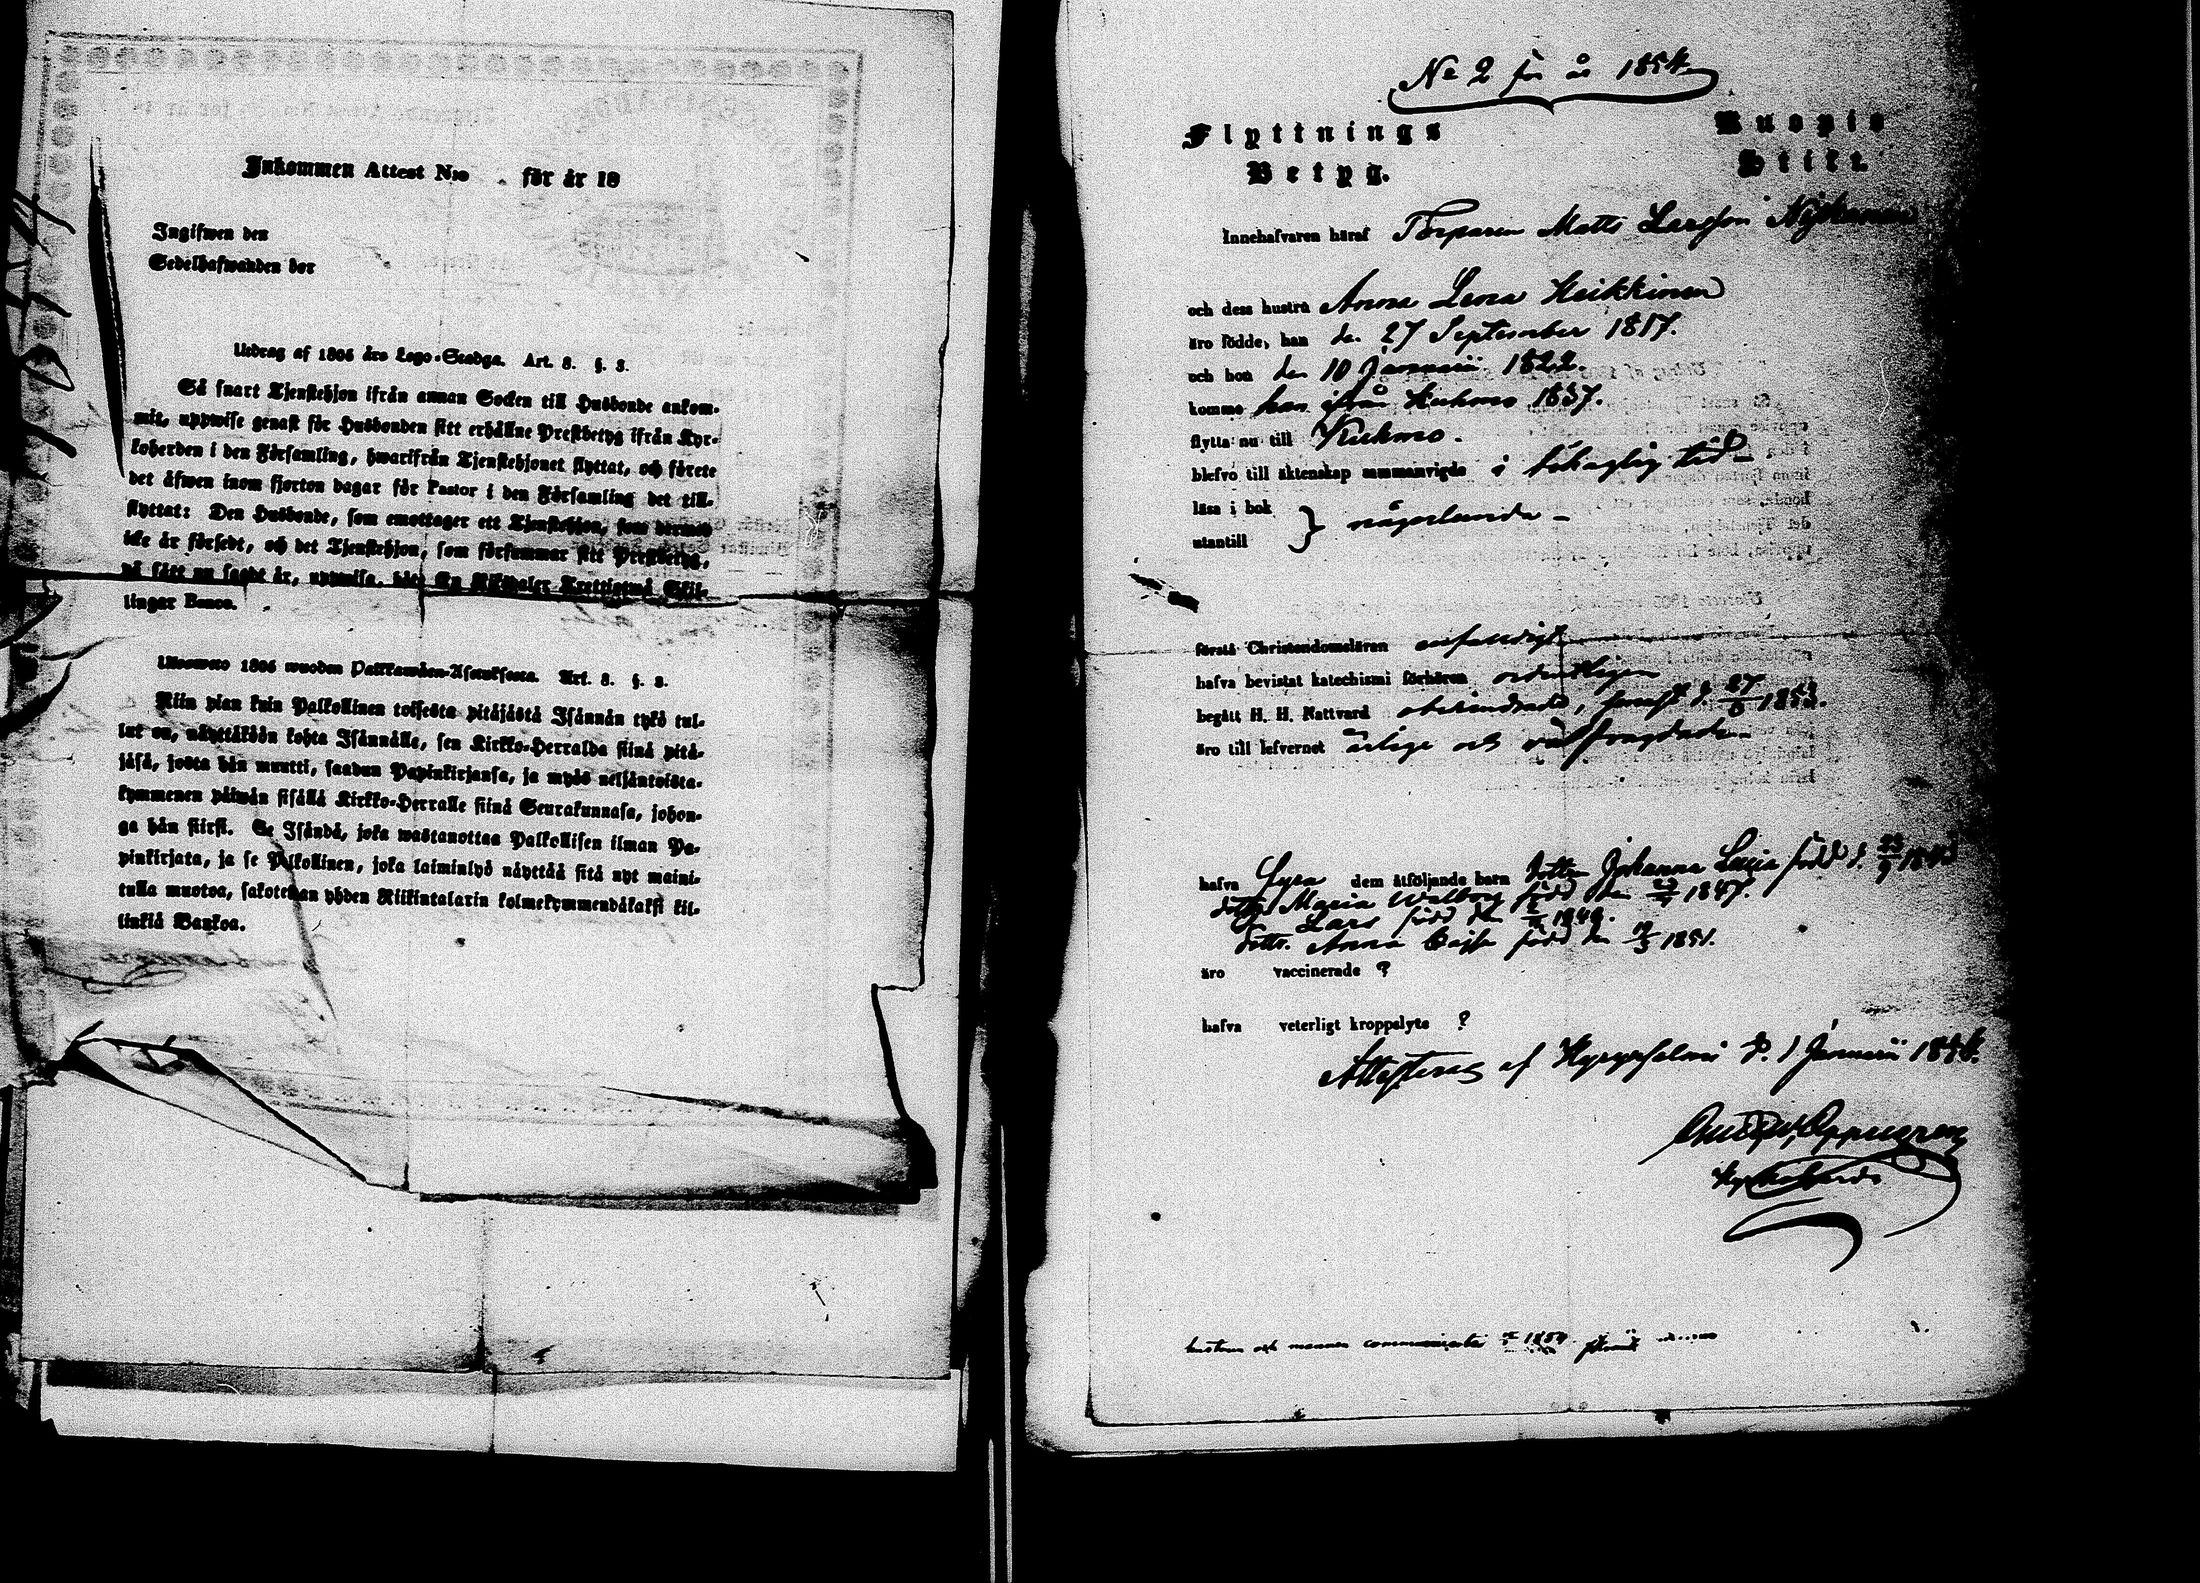 Inkommen Attest N:o för år 18
Ingifwen den
Sedelhafwanden bor
Utdrag af 1805 års Lego-Stadga. Art. 8. §. 3.
Så snart Tjenstehjon ifrån annan Socken till Husbonde ankom-
mit, uppwise genast för Husbonden sitt erhållne Prestbetyg ifrån Kyr-
koherden i den Församling, hwarifrån Tjenstehjonet flyttat, och förete
det äfwen inom fjorton dagar för Pastor i den Församling det till-
flyttat: Den Husbonde, som emottager ett Tjenstehjon, som dermed
icke är försedt, och det Tjenstehjon, som försummar sitt Prestbetyg,
på sätt nu sagdt är, uppwisa, böte En Riksdaler Trettiotwå Skil-
lingar Banco.
1805 wuoden Palkkawäen-Asetuksesta. Art. 8. §. 3.
Niin pian kuin Palkollinen toisesta pitäjästä Isännän tykö tul-
lut on, näyttäköön kohta Isännälle, sen Kirkko-Herralda siinä pitä-
jäsä, josta hän muutti, saadun Papinkirjansa, ja myös neljäntoista-
kymmenen päiwän sisällä Kirkko-Herralle siinä Seurakunnasa, johon-
ga hän siirsi. Se Isändä, joka wastanottaa Palkollisen ilman Pa-
pinkirjata, ja se Palkollinen, joka laiminlyö näyttää sitä nyt maini-
tulla muotoa, sakotetaan yhden Riikintalarin kolmekymmendäkaksi kil-
linkiä Bankoa.
No 2 för år 1854.
Flyttnings Kuopio
Betyg. Stift.
Innehafvaren häraf Torparen Matts Larsson Nykänen
och dess hustru Anna Lena Heikkinen
äro födde, han den 27 September 1817.
och hon den 10 Januarii 1822.
komme han ifrån Kuhmo 1837.
flytta nu till Kuhmo.
blefvo till äktenskap sammanvigde i behaglig tid
läsa i bok
utantill } någorlunda
förstå Christendomsläran enfaldigt
hafva bevistat katechismi förhören ordentligen
begått H. H. Nattvard oberindrade, senast d. 27/6 1853.
äro till lefvernet ärlige och väl frägdade
hafva fyra dem åtföljande barn dottren Johanna Lucia född d.
dottr. Maria Walborg född den 1847.
Lars född den 1849.
dottr. Anna Cajsa född den 19/3 1851.
äro vaccinerade ?
hafva veterligt kroppslyte ?
Attesteras af Hyrynsalmi d. 1 Januarii 1854.
Kyrkoherde
hustrun och mannen 1854